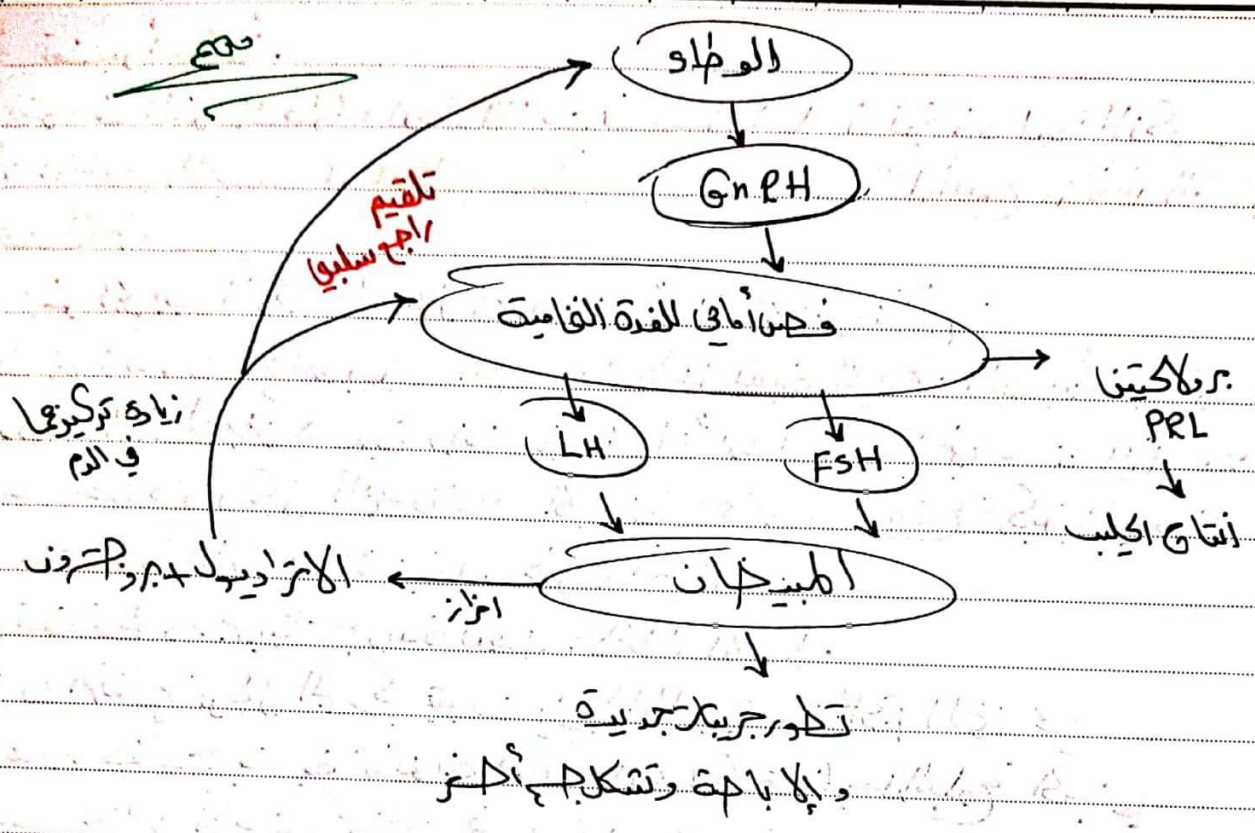 مهم
الوطاء
GnRH
تلقيم
راجع سلبي
فص أمامي للغدة النخامية
برولاكتين
PRL
زيادة تركيزهما
في الدم
LH
FSH
انتاج الحليب
المبيضان
افراز
الاستراديول + بروجسترون
تطور جريبات جديدة
والإباضة وتشكل ج. أصفر